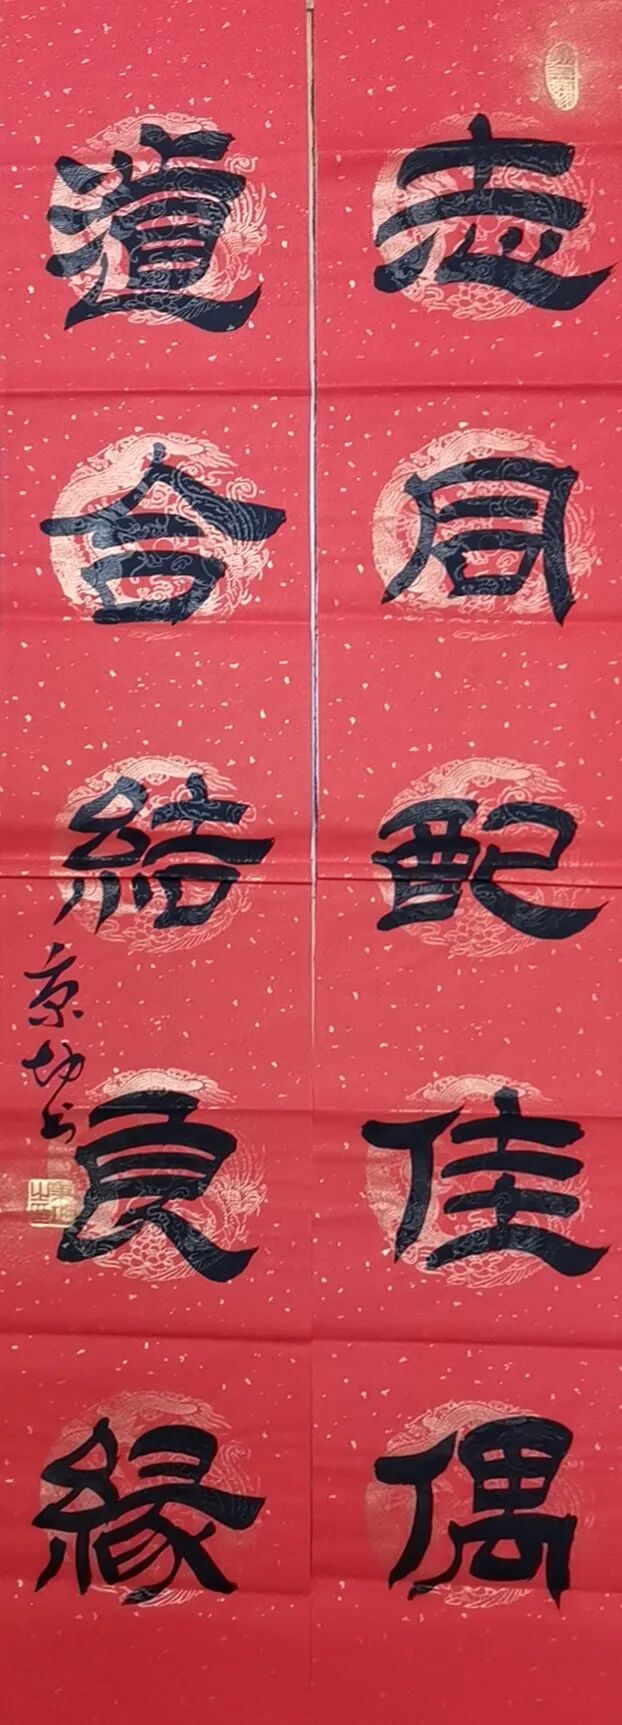 志同配佳偶
道合結良緣